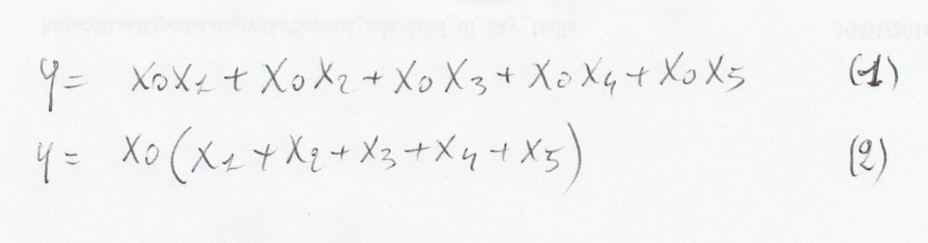 y= x0x1+x0x2+x0x3+x0x4+x0x5 (1)
y= x0(x1+x2+x3+x4+x5) (2)